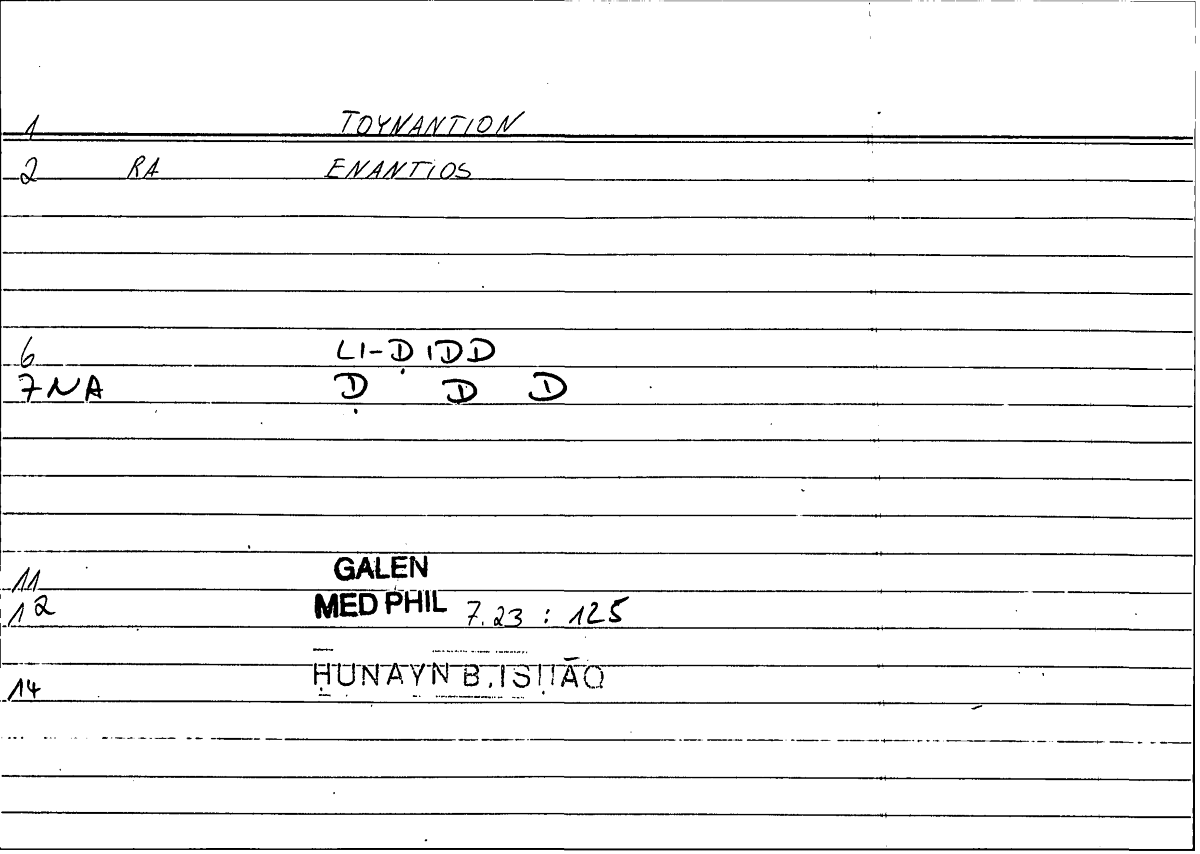 1 TOYNANTION
2 RA ENANTIOS
6 LI-ḌIDD
7 NA Ḍ D D
11 GALEN
12 MED PHIL 7.23 : 125
14 ḤUNAYN B. ISḤĀQ